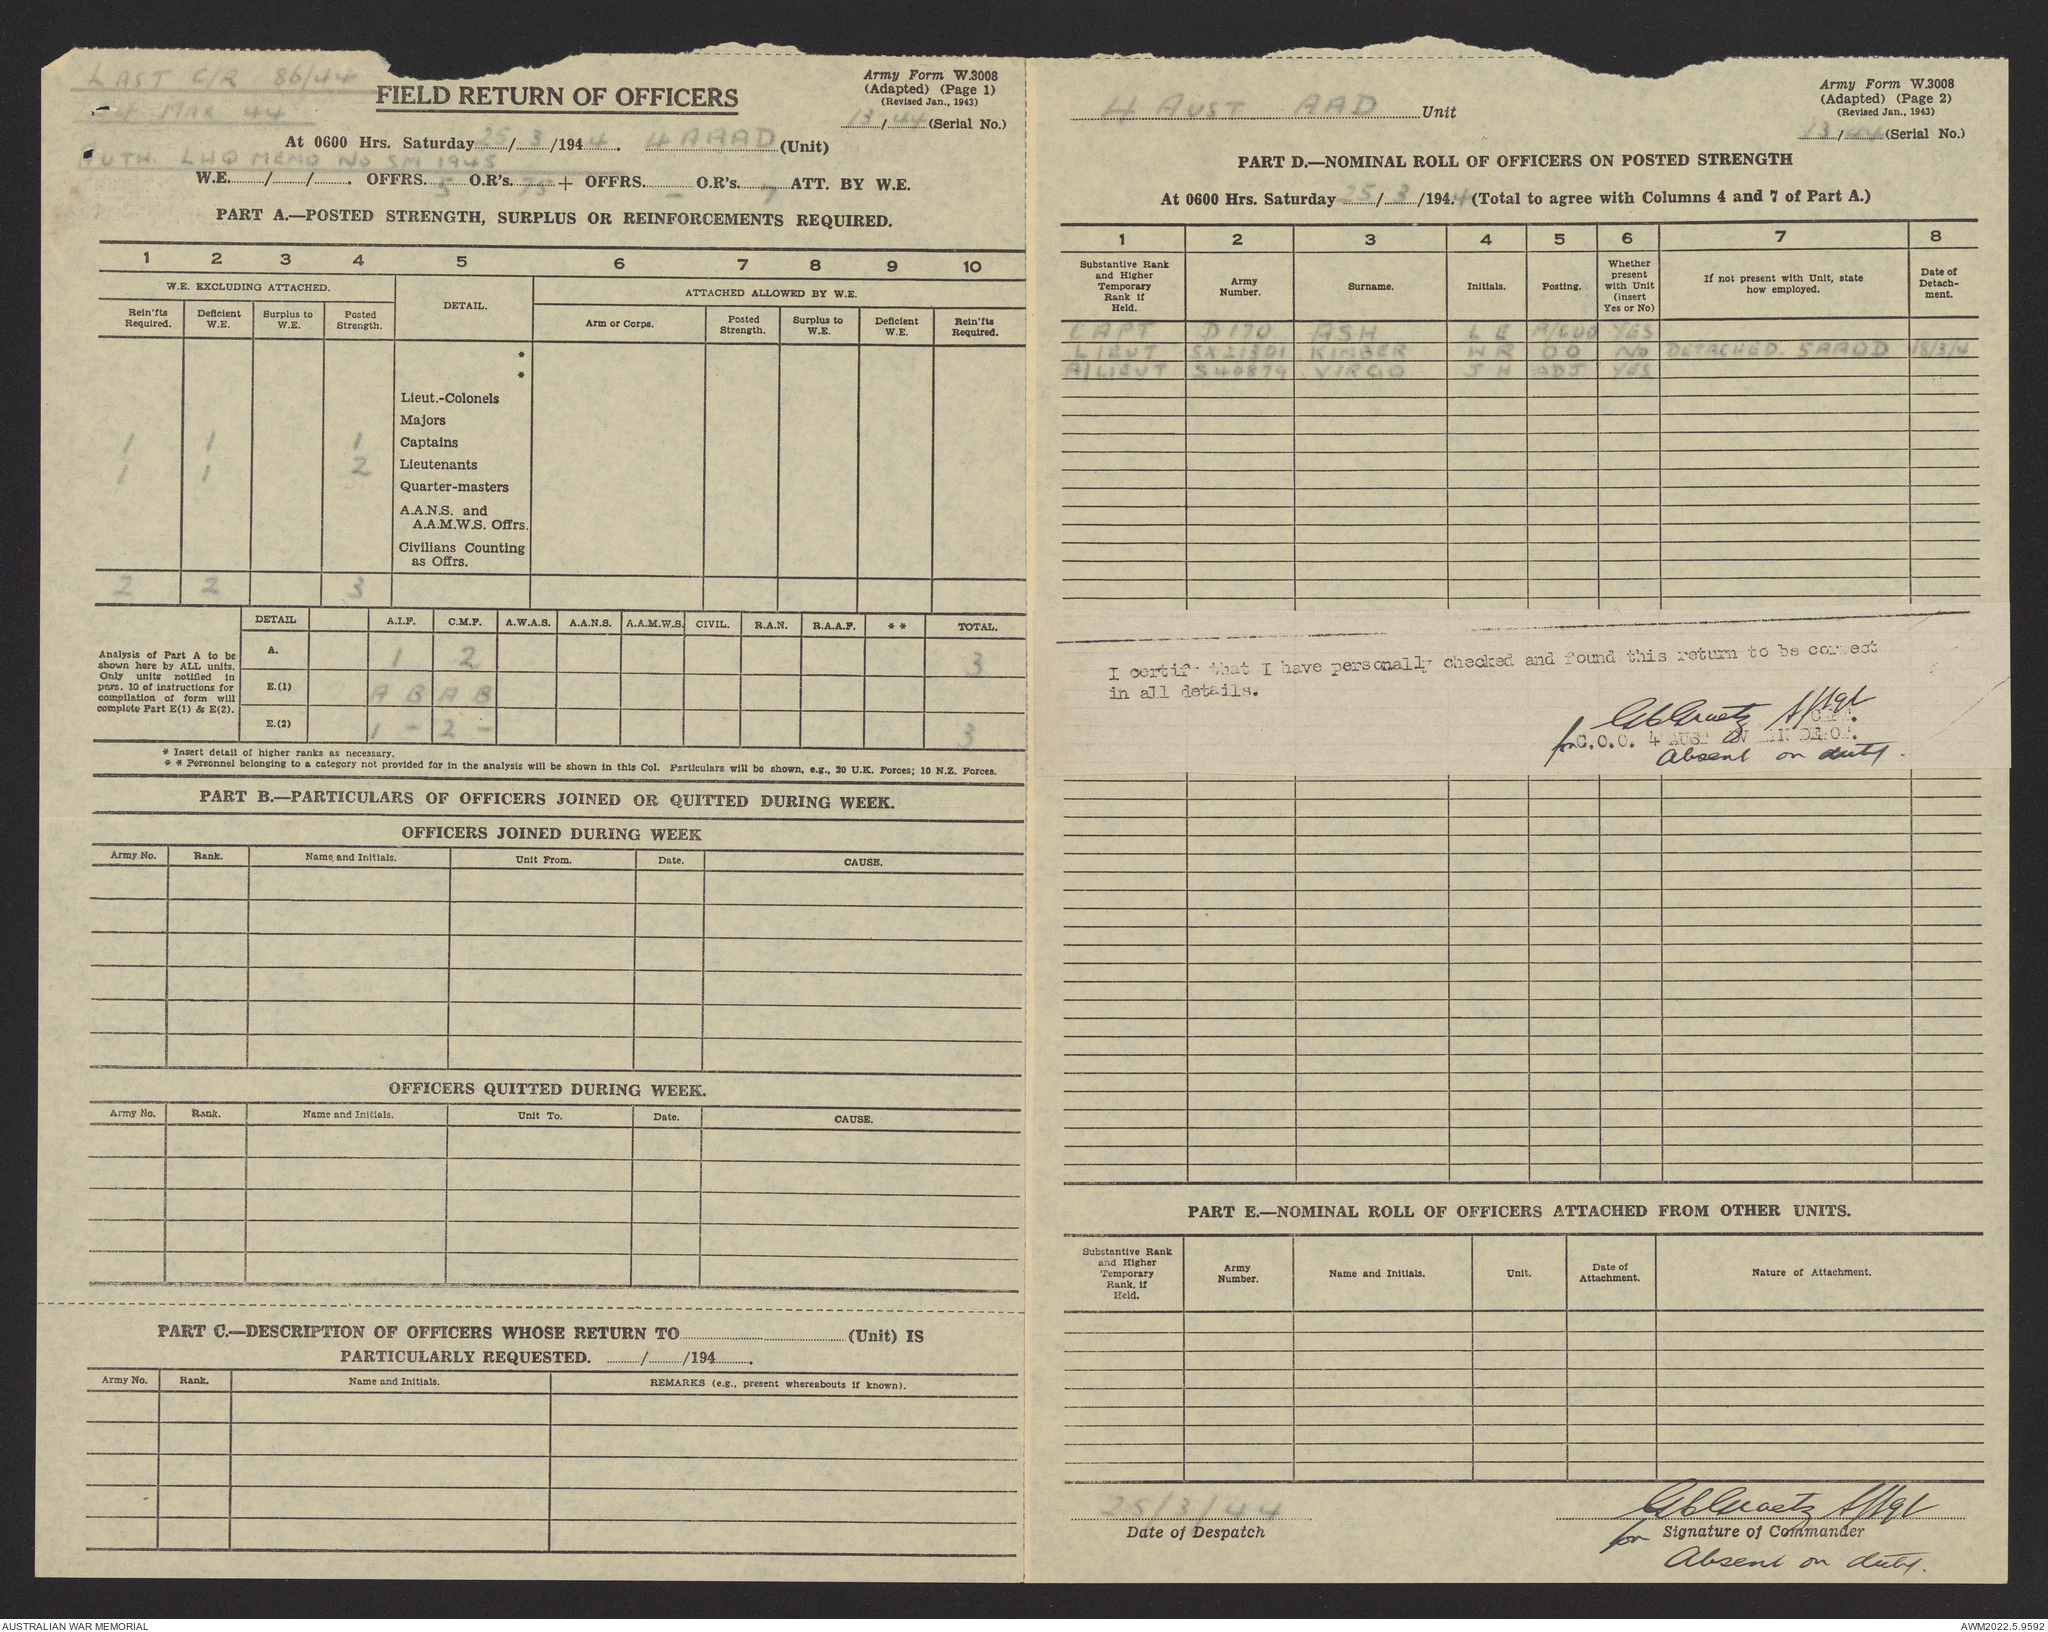 LAST C/R 86/44
MAR 44
AUTH. LHQ MEMO No SM 1945
FIELD RETURN OF OFFICERS
Army Form W.3008
(Adapted) (Page 1)
(Revised Jan., 1943)
13/44 (Serial No.)
At 0600 Hrs. Saturday 25/3/1944. 4 AAAD (Unit)
W.E....../....../....... OFFRS. 5 O.R's. 75 + OFFRS. - O.R's. 7 ATT. BY W.E.
PART A.—POSTED STRENGTH, SURPLUS OR REINFORCEMENTS REQUIRED.
1 2 3 4 5 6 7 8 9 10
W.E. EXCLUDING ATTACHED. DETAIL. ATTACHED ALLOWED BY W.E.
Rein'fts Required. Deficient W.E. Surplus to W.E. Posted Strength. Arm or Corps. Posted Strength. Surplus to W.E. Deficient W.E. Rein'fts Required.
*
*
Lieut.-Colonels
Majors
1 1 1 Captains
1 1 2 Lieutenants
Quarter-masters
A.A.N.S. and
A.A.M.W.S. Offrs.
Civilians Counting
as Offrs.
2 2 3
Analysis of Part A to be shown here by ALL units. Only units notified in pars. 10 of instructions for compilation of form will complete Part E(1) & E(2).
DETAIL A.I.F. C.M.F. A.W.A.S. A.A.N.S. A.A.M.W.S. CIVIL. R.A.N. R.A.A.F. * * TOTAL.
A. 1 2 3
E.(1) A B A B
E.(2) 1 - 2 - 3
* Insert detail of higher ranks as necessary.
* * Personnel belonging to a category not provided for in the analysis will be shown in this Col. Particulars will be shown, e.g., 20 U.K. Forces; 10 N.Z. Forces.
PART B.—PARTICULARS OF OFFICERS JOINED OR QUITTED DURING WEEK.
OFFICERS JOINED DURING WEEK
Army No. Rank. Name and Initials. Unit From. Date. CAUSE.
OFFICERS QUITTED DURING WEEK.
Army No. Rank. Name and Initials. Unit To. Date. CAUSE.
PART C.—DESCRIPTION OF OFFICERS WHOSE RETURN TO.......... (Unit) IS
PARTICULARLY REQUESTED. ....../....../194.......
Army No. Rank. Name and Initials. REMARKS (e.g., present whereabouts if known).
4 AUST AAD Unit
Army Form W.3008
(Adapted) (Page 2)
(Revised Jan., 1943)
13/44 (Serial No.)
PART D.—NOMINAL ROLL OF OFFICERS ON POSTED STRENGTH
At 0600 Hrs. Saturday 25/3/1944 (Total to agree with Columns 4 and 7 of Part A.)
1 2 3 4 5 6 7 8
Substantive Rank and Higher Temporary Rank if Held. Army Number. Surname. Initials. Posting. Whether present with Unit (insert Yes or No) If not present with Unit, state how employed. Date of Detachment.
CAPT D170 ASH L E A/COO YES
LIEUT SX21301 KIMBER W R OO NO DETACHED. 5AAOD 18/3/4
A/LIEUT S40879 VIRGO J H ADJ YES
I certify that I have personally checked and found this return to be correct
in all details.
S/Sgt
for C.O.O. 4 AUST
Absent on duty.
PART E.—NOMINAL ROLL OF OFFICERS ATTACHED FROM OTHER UNITS.
Substantive Rank and Higher Temporary Rank, if Held. Army Number. Name and Initials. Unit. Date of Attachment. Nature of Attachment.
25/3/44
Date of Despatch
S/Sgt
for Signature of Commander
Absent on duty.
AUSTRALIAN WAR MEMORIAL
AWM2022.5.9592